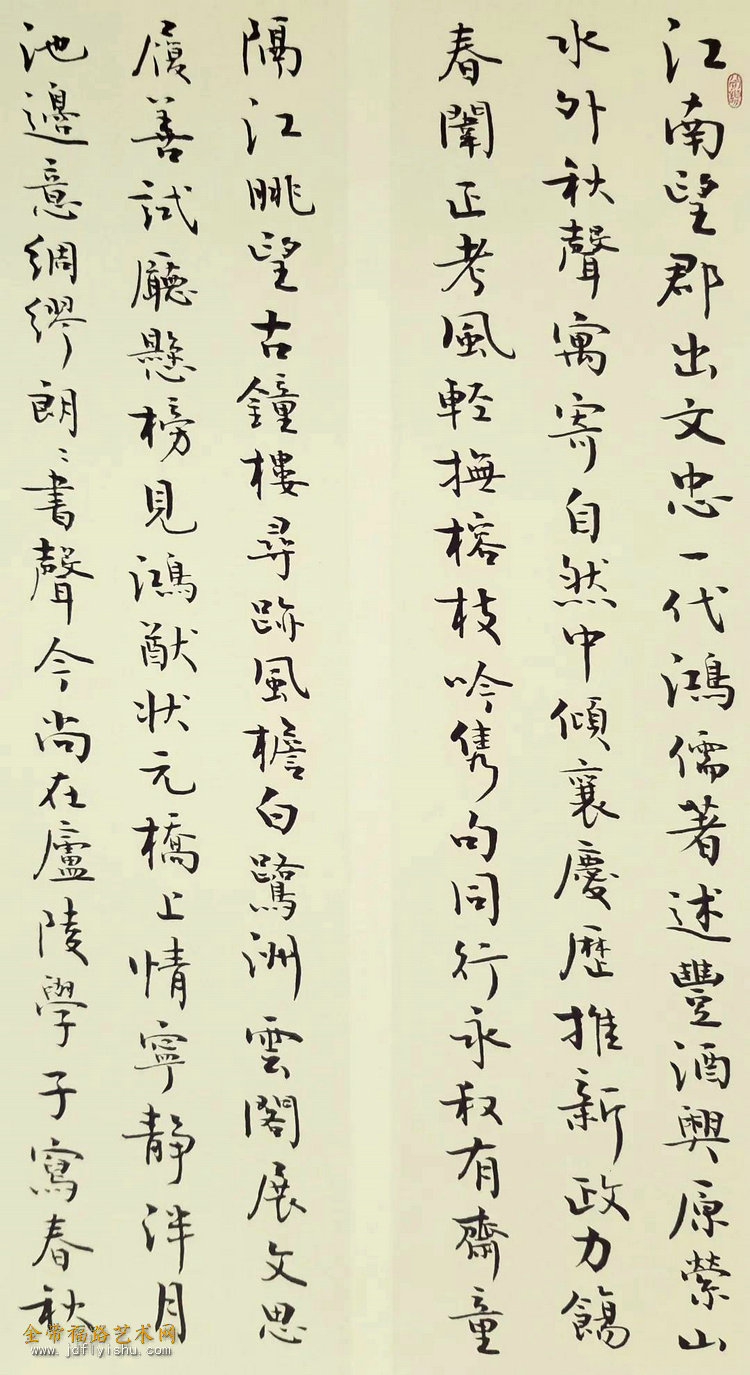 江南望郡出文忠一代鴻儒著述豐酒興原縈山
水外秋聲寓寄自然中傾襄慶歷推新政力餳
春闈正考風輕撫榕枝吟雋句同行永叔有齋童
隔江眺望古鐘樓尋跡風檐白鷺洲雲閣展文思
履善試廳懸榜見鴻猷狀元橋上情寧靜泮月
池邊意綢繆朗〻書聲今尚在廬陵學子寫春秋
金带福路艺术网
www.jdflyishu.com